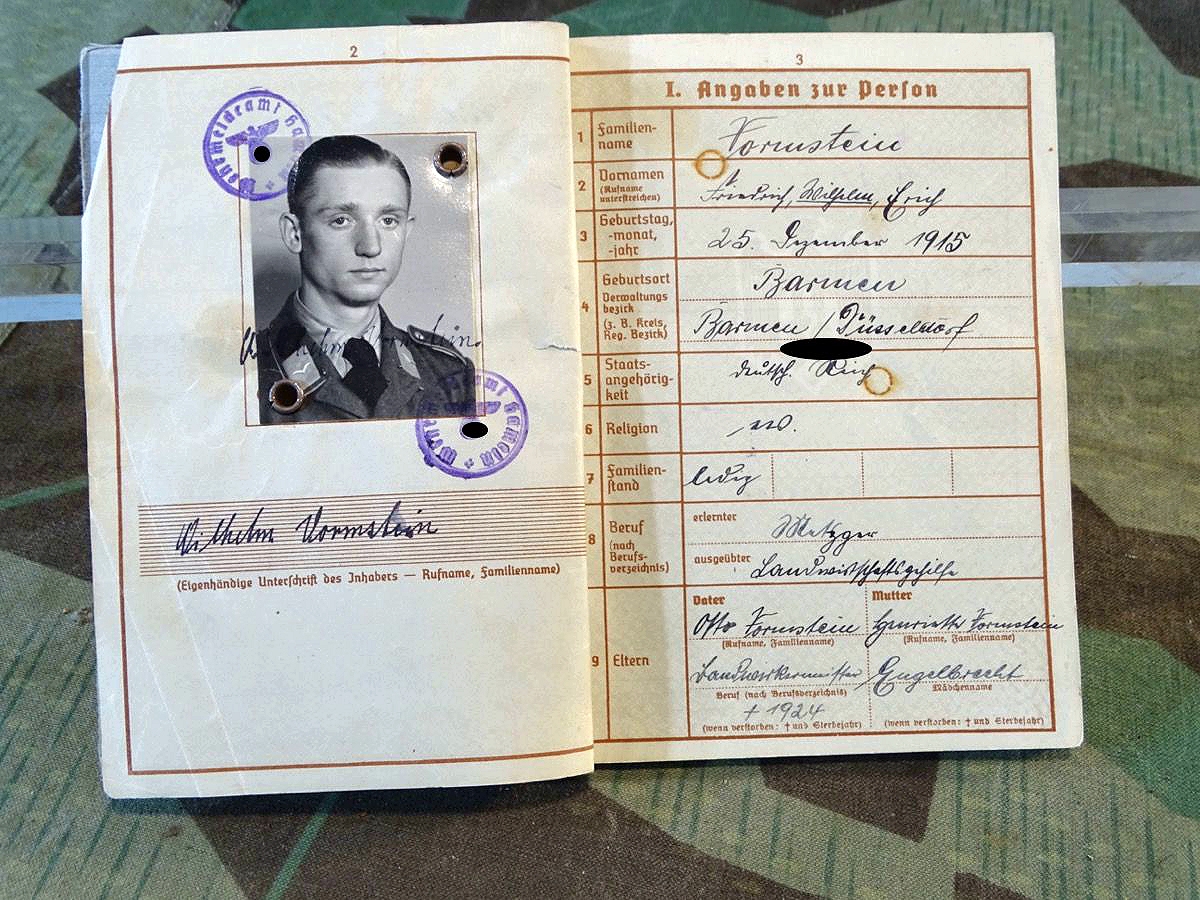 2
Wehrmeldeamt Hameln
Wilhelm Vormstein.
Wehrmeldeamt Hameln
Wilhelm Vormstein
(Eigenhändige Unterschrift des Inhabers — Rufname, Familienname)
3
I. Angaben zur Person
1 Familien-
name
Vormstein
2 Vornamen
(Rufname
unterstreichen)
Friedrich, Wilhelm, Erich
3 Geburtstag,
-monat,
-jahr
25. Dezember 1915
4 Geburtsort
Barmen
Verwaltungs
bezirk
(z. B. Kreis,
Reg. Bezirk)
Barmen / Düsseldorf
5 Staats-
angehörig-
keit
deutsch. Reich
6 Religion
7 Familien-
stand
ledig
8 Beruf
(nach
Berufs-
verzeichnis)
erlernter
Metzger
ausgeübter
Landwirtschaftsgehilfe
9 Eltern
Vater Mutter
Otto Vormstein Henriette Vormstein
(Rufname, Familienname) (Rufname, Familienname)
Engelbrecht
Beruf (nach Berufsverzeichnis) Mädchenname
† 1924
(wenn verstorben: † und Sterbejahr) (wenn verstorben: † und Sterbejahr)